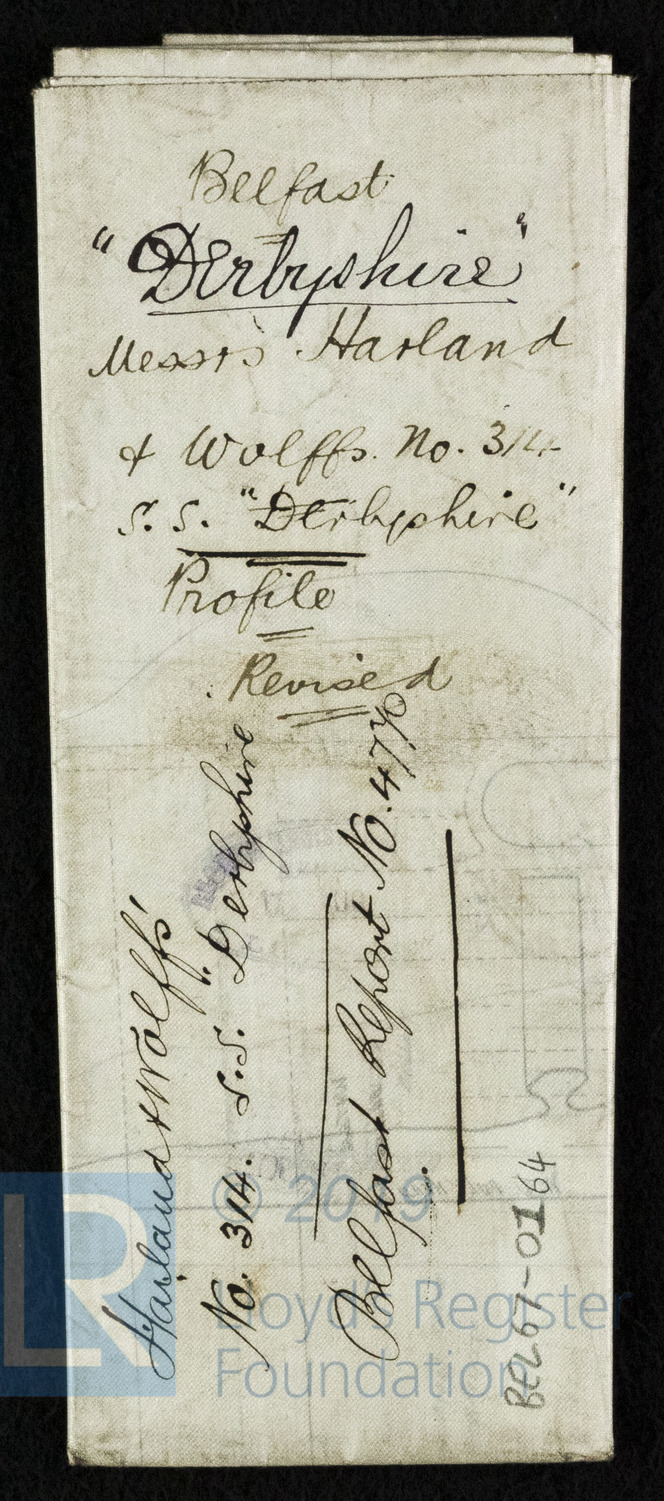 Belfast
"Derbyshire"
Messrs Harland
& Wolffs. No. 314
S. S. "Derbyshire"
Profile
Revised
Harland & Wolffs'
No. 314. S.S. "Derbyshire
Belfast Report No.
BEL67-0164
© 2019
LR
Lloyd's Register
Foundation